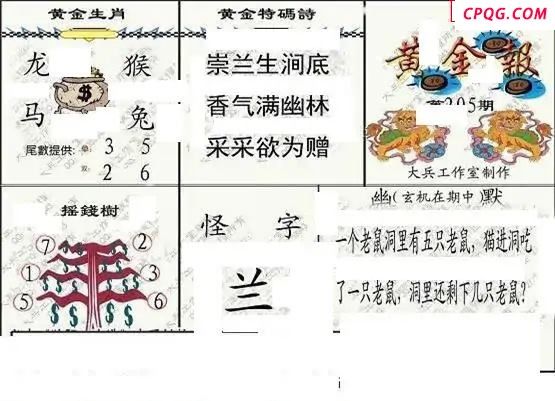 CPQG.COM
黄金生肖
龙 猴
马 兔
尾數提供: 单 3 5
双 2 6
黄金特碼詩
崇兰生涧底
香气满幽林
采采欲为赠
黄金報
第205期
大兵工作室制作
摇錢樹
⑦ ②
① ③
⑤ ⑥
怪 字
兰
幽(玄机在期中)默
一个老鼠洞里有五只老鼠，猫进洞吃
了一只老鼠，洞里还剩下几只老鼠?